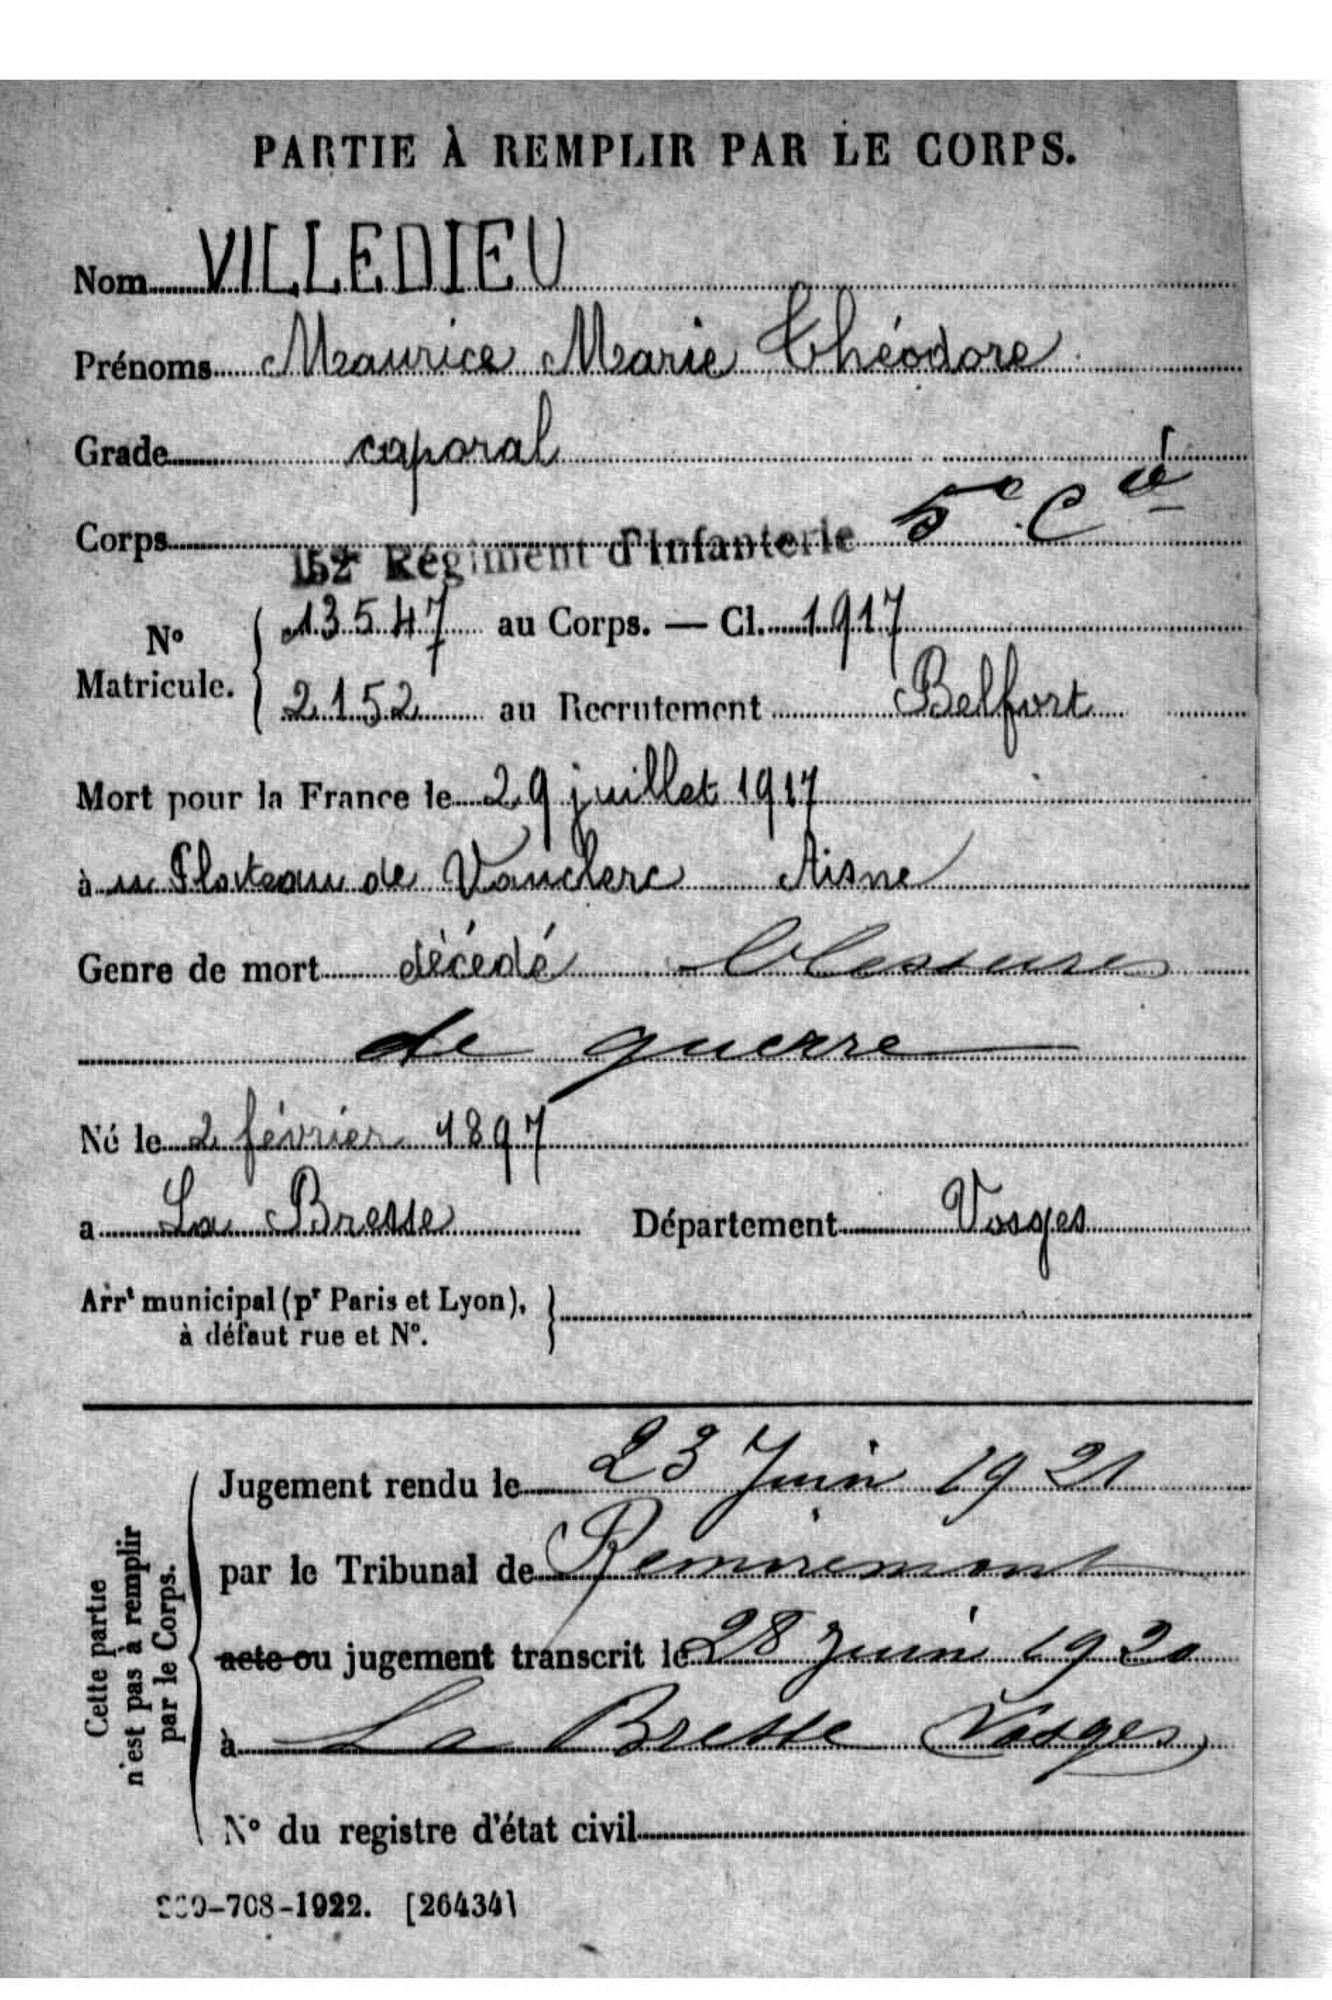 PARTIE À REMPLIR PAR LE CORPS.
Nom VILLEDIEU
Prénoms Maurice Marie Théodore
Grade caporal
Corps 152e Régiment d'Infanterie 5e Cie
N° Matricule. 13547 au Corps. — Cl. 1917
2152 au Recrutement Belfort
Mort pour la France le 29 juillet 1917
à Plateau de Vauclerc Aisne
Genre de mort décédé blessures
de guerre
Né le 2 février 1897
à La Bresse Département Vosges
Arrt municipal (pr Paris et Lyon),
à défaut rue et N°.
Cette partie
n'est pas à remplir
par le Corps.
Jugement rendu le 23 Juin 1921
par le Tribunal de Remiremont
acte ou jugement transcrit le 28 Juin 192
à La Bresse Vosges
N° du registre d'état civil
-708-1922. [26434]